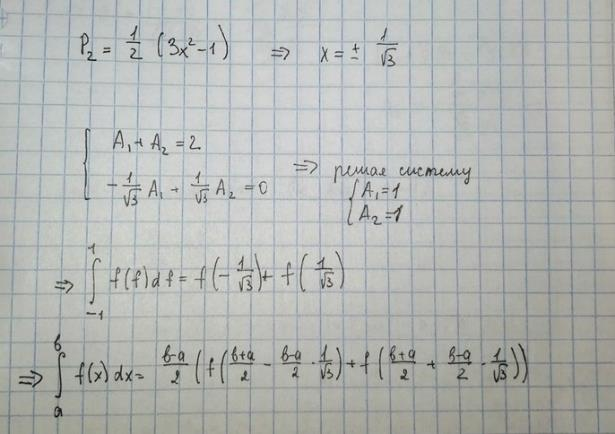 P₂ = 1/2 (3x² - 1) ⇒ x = ± 1/√3
{ A₁ + A₂ = 2
{ -1/√3 A₁ + 1/√3 A₂ = 0 ⇒ решая систему
{ A₁ = 1
{ A₂ = 1
⇒ ∫₋₁¹ f(f) df = f(-1/√3) + f(1/√3)
⇒ ∫ₐᵇ f(x) dx = (b-a)/2 (f((b+a)/2 - (b-a)/2 · 1/√3) + f((b+a)/2 + (b-a)/2 · 1/√3))